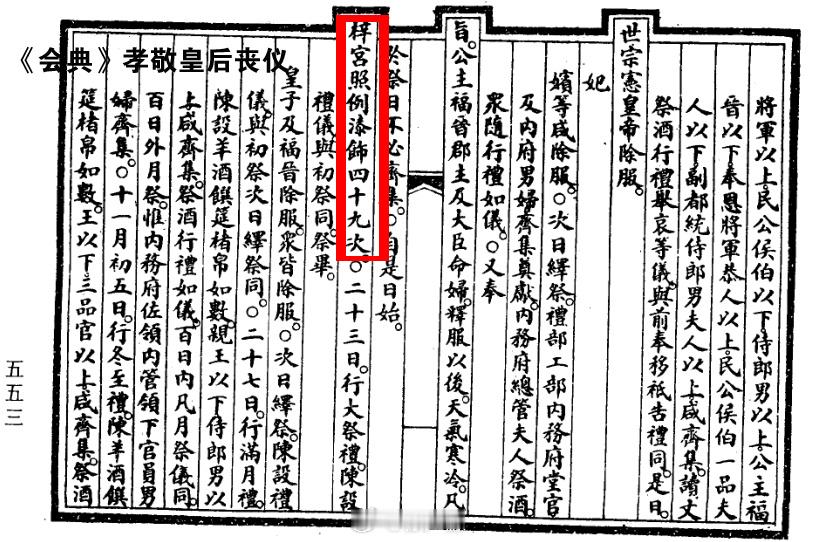 《会典》孝敬皇后丧仪
將軍以上。民公侯伯以下。侍郎男以上。公主福
晉以下。奉恩將軍恭人以上。民公侯伯一品夫
人以下。副都統侍郎男夫人以上。咸齊集。讀文
祭酒行禮舉哀等儀。與前奉移祇告禮同。是日。
世宗憲皇帝除服。
妃
嬪等咸除服。○次日繹祭。禮部工部內務府堂官
及內府男婦齊集奠獻。內務府總管夫人祭酒。
眾隨行禮如儀。○又奉
旨。公主福晉郡主及大臣命婦。釋服以後。天氣寒冷。凡
於祭日不必齊集。○自是日始。
梓宮照例漆飾四十九次。○二十三日。行大祭禮。陳設
禮儀與初祭同。祭畢。
皇子及福晉除服。眾皆除服。○次日繹祭。陳設禮
儀。與初祭次日繹祭同。○二十七日。行滿月禮。
陳設羊酒饌筵楮帛如數。親王以下。侍郎男以
上咸齊集。祭酒行禮如儀。百日內凡月祭儀同。
百日外月祭。惟內務府佐領內管領下官員男
婦齊集。○十一月初五日。行冬至禮。陳羊酒饌
筵楮帛如數。王以下。三品官以上。咸齊集。祭酒
五五三